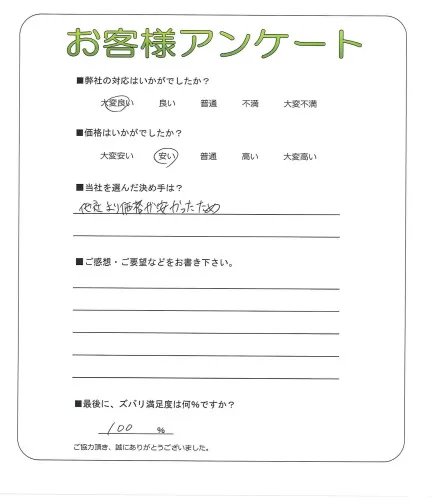 お客様アンケート
■弊社の対応はいかがでしたか？
大変良い 良い 普通 不満 大変不満
■価格はいかがでしたか？
大変安い 安い 普通 高い 大変高い
■当社を選んだ決め手は？
他社より価格が安かったため
■ご感想・ご要望などをお書き下さい。
■最後に、ズバリ満足度は何%ですか？
100 %
ご協力頂き、誠にありがとうございました。